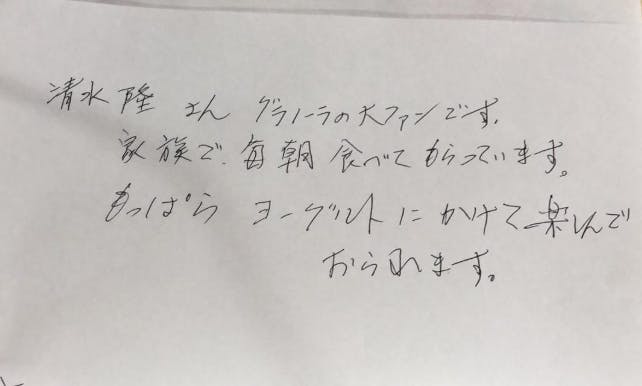 清水 隆 さん グラノーラの大ファンです。
家族で、毎朝 食べてもらっています。
もっぱら ヨーグルトにかけて楽しんで
おられます。